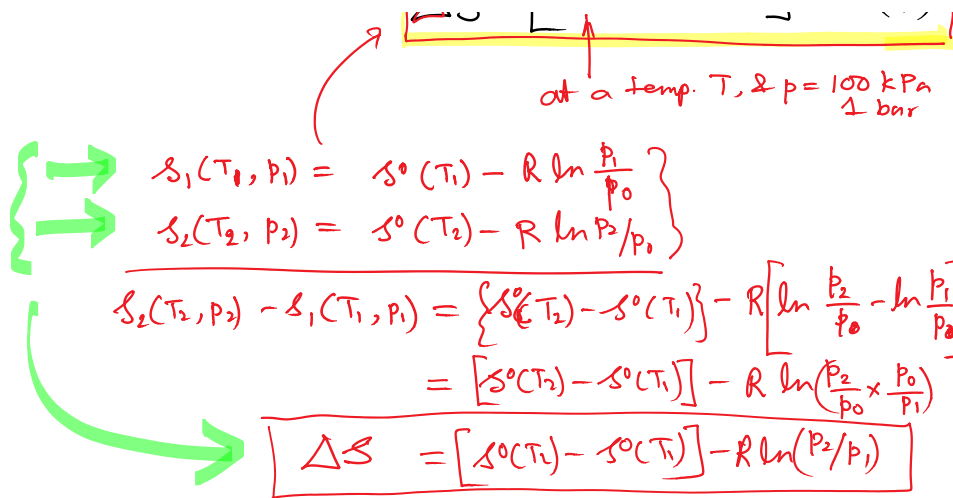 at a temp. T, & p = 100 kPa
1 bar
s₁(T₁, p₁) = s⁰(T₁) − R ln p₁/p₀
s₂(T₂, p₂) = s⁰(T₂) − R ln p₂/p₀
s₂(T₂, p₂) − s₁(T₁, p₁) = {s⁰(T₂) − s⁰(T₁)} − R[ln p₂/p₀ − ln p₁/p₀]
= [s⁰(T₂) − s⁰(T₁)] − R ln(p₂/p₀ × p₀/p₁)
Δs = [s⁰(T₂) − s⁰(T₁)] − R ln(p₂/p₁)